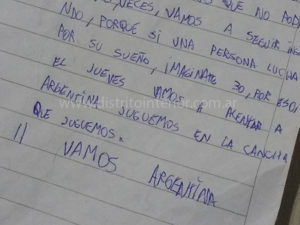 VECES, VAMOS A SEGUIR
NDO, PORQUE SI UNA PERSONA LUCHA
POR SU SUEÑO, IMAGINATE 30, POR ESO,
EL JUEVES VAMOS A ALENTAR A
ARGENTINA JUGUEMOS EN LA CANCHA
QUE JUGUEMOS.
www.distritointerior.com.ar
!! VAMOS ARGENTINA